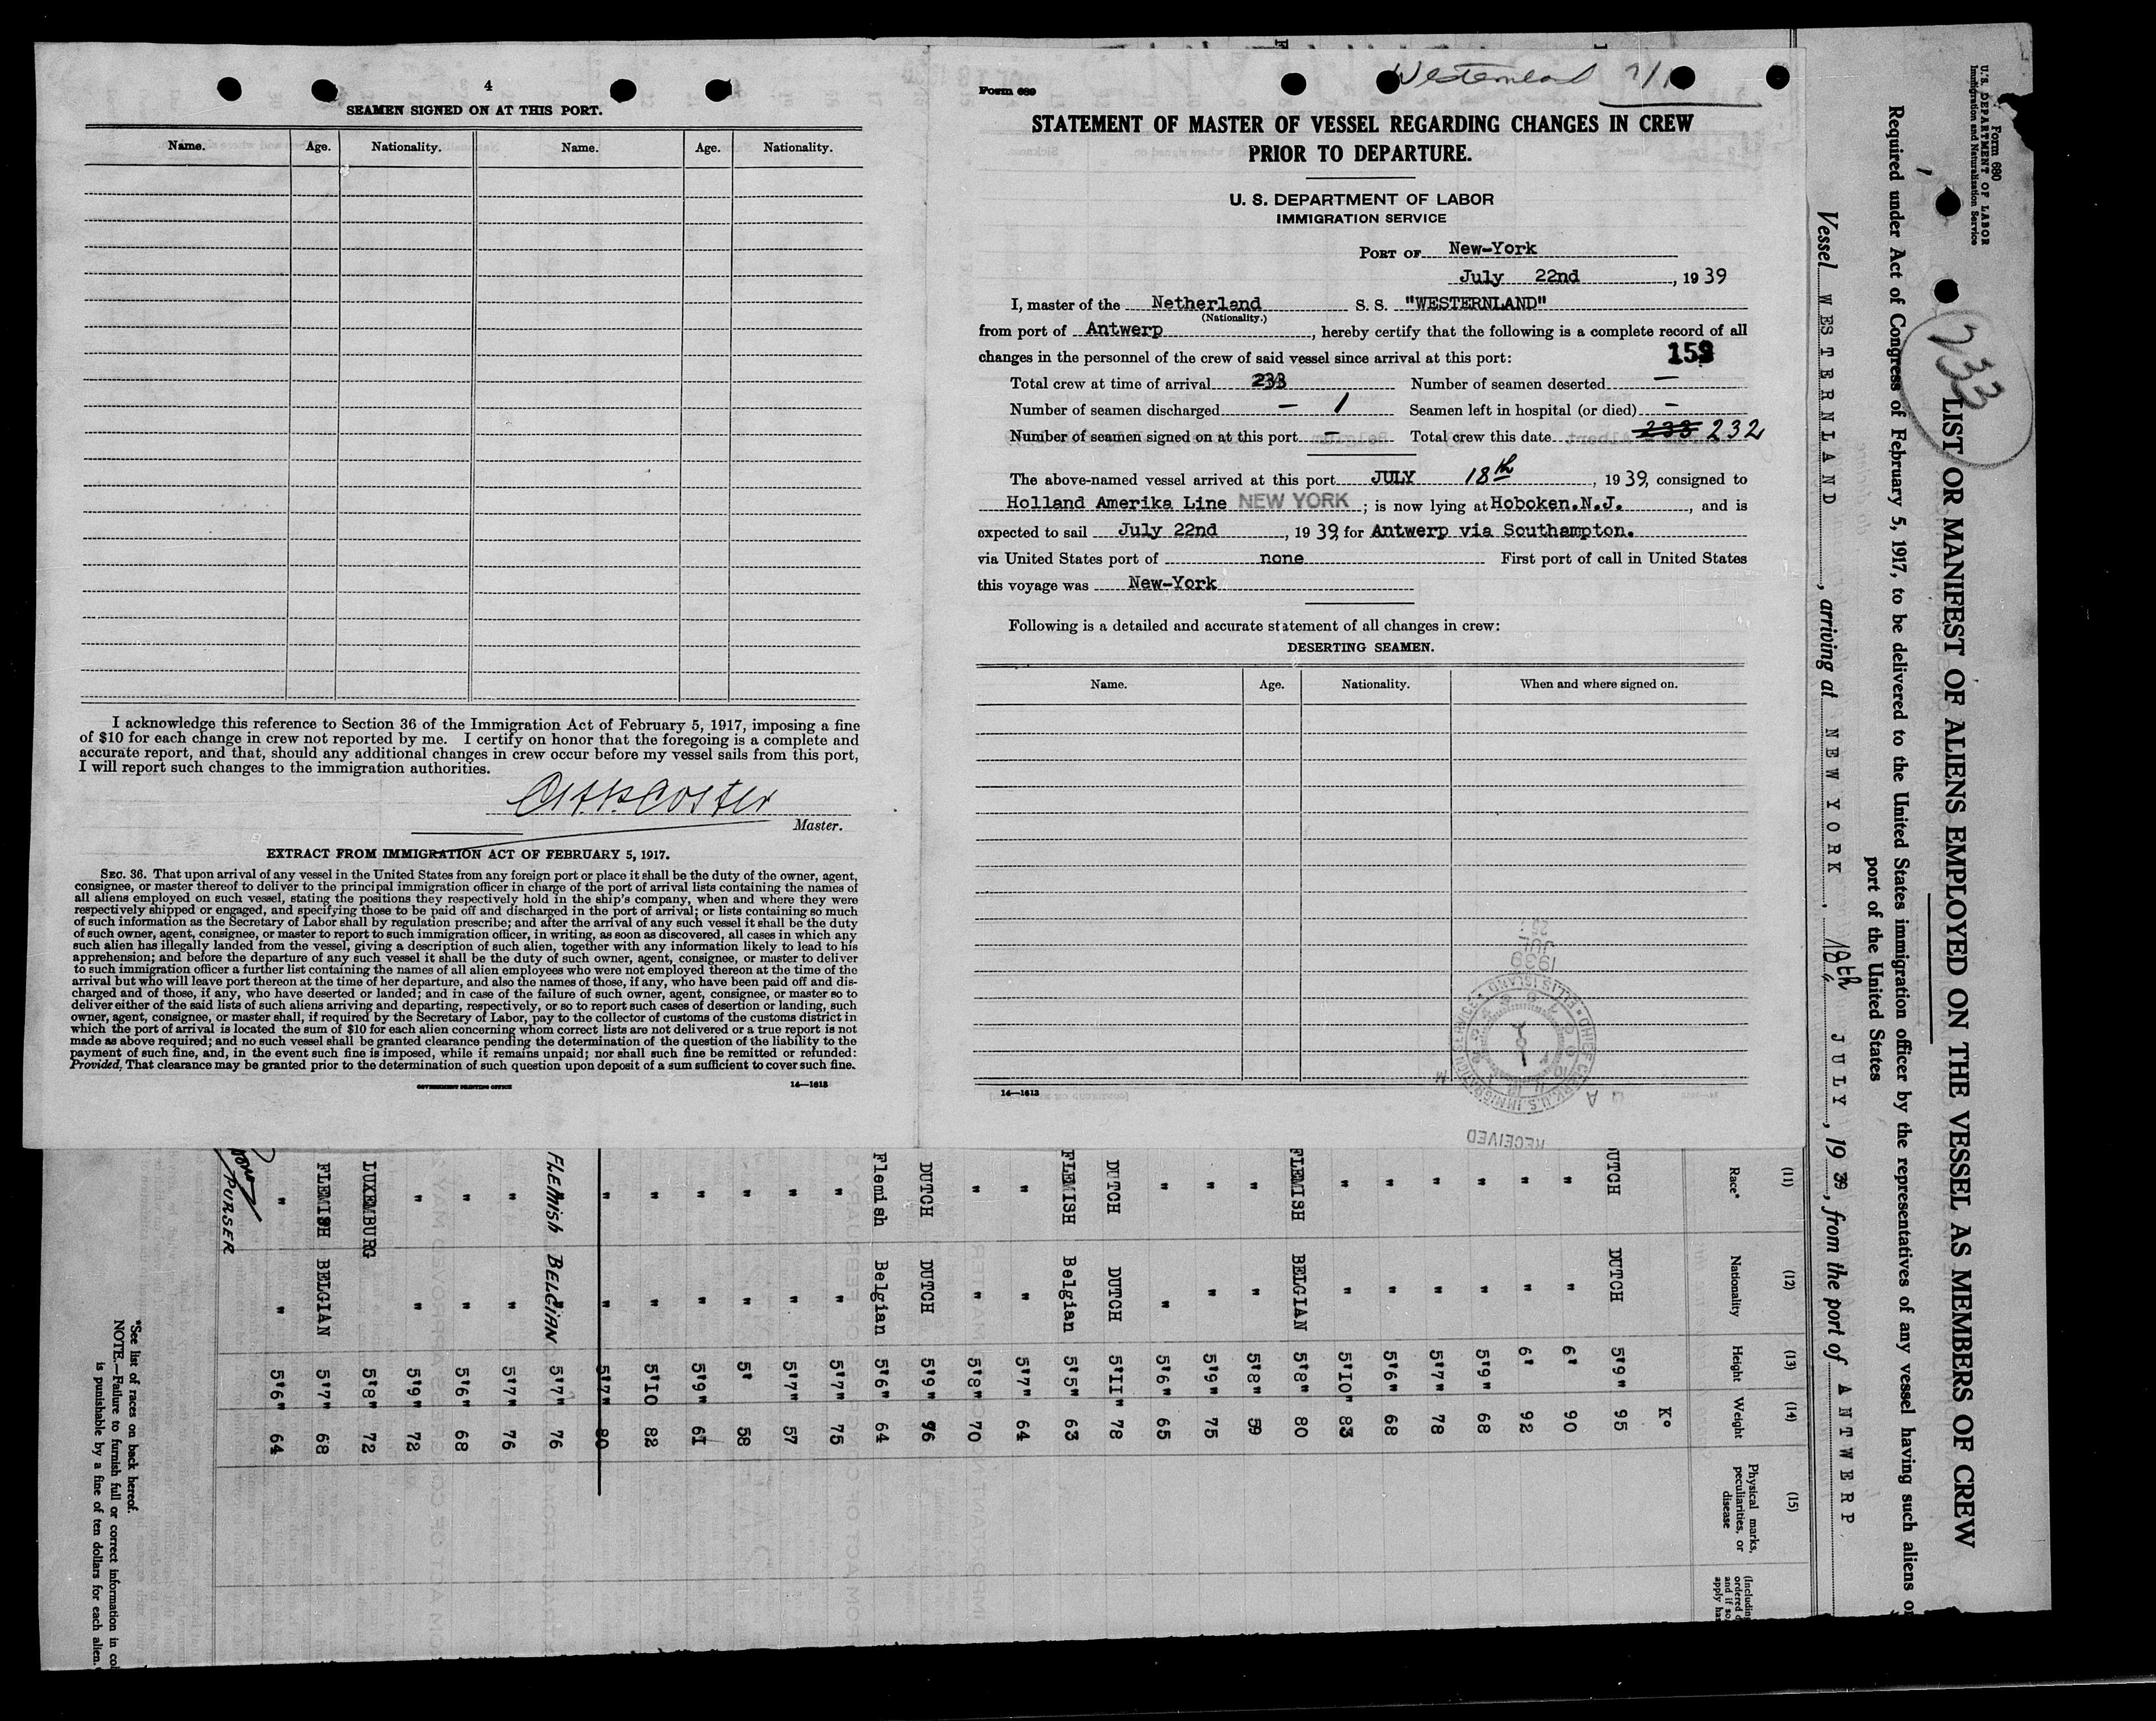 4
SEAMEN SIGNED ON AT THIS PORT.
Name. Age. Nationality. Name. Age. Nationality.
I acknowledge this reference to Section 36 of the Immigration Act of February 5, 1917, imposing a fine
of $10 for each change in crew not reported by me. I certify on honor that the foregoing is a complete and
accurate report, and that, should any additional changes in crew occur before my vessel sails from this port,
I will report such changes to the immigration authorities.
Master.
EXTRACT FROM IMMIGRATION ACT OF FEBRUARY 5, 1917.
SEC. 36. That upon arrival of any vessel in the United States from any foreign port or place it shall be the duty of the owner, agent,
consignee, or master thereof to deliver to the principal immigration officer in charge of the port of arrival lists containing the names of
all aliens employed on such vessel, stating the positions they respectively hold in the ship's company, when and where they were
respectively shipped or engaged, and specifying those to be paid off and discharged in the port of arrival; or lists containing so much
of such information as the Secretary of Labor shall by regulation prescribe; and after the arrival of any such vessel it shall be the duty
of such owner, agent, consignee, or master to report to such immigration officer, in writing, as soon as discovered, all cases in which any
such alien has illegally landed from the vessel, giving a description of such alien, together with any information likely to lead to his
apprehension; and before the departure of any such vessel it shall be the duty of such owner, agent, consignee, or master to deliver
to such immigration officer a further list containing the names of all alien employees who were not employed thereon at the time of the
arrival but who will leave port thereon at the time of her departure, and also the names of those, if any, who have been paid off and dis-
charged and of those, if any, who have deserted or landed; and in case of the failure of such owner, agent, consignee, or master so to
deliver either of the said lists of such aliens arriving and departing, respectively, or so to report such cases of desertion or landing, such
owner, agent, consignee, or master shall, if required by the Secretary of Labor, pay to the collector of customs of the customs district in
which the port of arrival is located the sum of $10 for each alien concerning whom correct lists are not delivered or a true report is not
made as above required; and no such vessel shall be granted clearance pending the determination of the question of the liability to the
payment of such fine, and, in the event such fine is imposed, while it remains unpaid; nor shall such fine be remitted or refunded:
Provided, That clearance may be granted prior to the determination of such question upon deposit of a sum sufficient to cover such fine.
GOVERNMENT PRINTING OFFICE 14—1613
Westernland
Form 689
STATEMENT OF MASTER OF VESSEL REGARDING CHANGES IN CREW
PRIOR TO DEPARTURE.
U. S. DEPARTMENT OF LABOR
IMMIGRATION SERVICE
PORT OF New-York
July 22nd, 1939
I, master of the Netherland S. S. "WESTERNLAND"
(Nationality.)
from port of Antwerp, hereby certify that the following is a complete record of all
changes in the personnel of the crew of said vessel since arrival at this port:
Total crew at time of arrival 233 Number of seamen deserted —
Number of seamen discharged — 1 Seamen left in hospital (or died) —
Number of seamen signed on at this port — Total crew this date 233 232
The above-named vessel arrived at this port JULY 18th, 1939, consigned to
Holland Amerika Line NEW YORK; is now lying at Hoboken.N.J., and is
expected to sail July 22nd, 1939, for Antwerp via Southampton.
via United States port of none First port of call in United States
this voyage was New-York
Following is a detailed and accurate statement of all changes in crew:
DESERTING SEAMEN.
Name. Age. Nationality. When and where signed on.
JUL
1939
CHIEF CLERK, U.S. IMMIGRATION SERVICE ELLIS ISLAND
RECEIVED
14—1613
Form 680
U. S. DEPARTMENT OF LABOR
Immigration and Naturalization Service
1
233
LIST OR MANIFEST OF ALIENS EMPLOYED ON THE VESSEL AS MEMBERS OF CREW
Required under Act of Congress of February 5, 1917, to be delivered to the United States immigration officer by the representatives of any vessel having such aliens
port of the United States
Vessel WESTERNLAND, arriving at NEW YORK, 18th JULY, 1939, from the port of ANTWERP
(11) (12) (13) (14) (15)
Race* Nationality Height Weight Physical marks, peculiarities, or disease
K°
DUTCH 5'9" 95
" " 6' 90
" " 6' 92
" " 5'9" 68
" " 5'7" 78
" " 5'6" 68
" " 5'10" 83
FLEMISH BELGIAN 5'8" 80
" " 5'8" 59
" " 5'9" 75
" " 5'6" 65
DUTCH DUTCH 5'II" 78
FLEMISH Belgian 5'5" 63
" " 5'7" 64
" " 5'8" 70
DUTCH DUTCH 5'9" 76
Flemish Belgian 5'6" 64
" " 5'7" 75
" " 5'7" 57
" " 5' 58
" " 5'9" 61
" " 5'IO 82
" " 5'7" 80
FLEMISH BELGIAN 5'7" 76
" " 5'7" 76
" " 5'6" 68
" " 5'9" 72
LUXEMBURG 5'8" 72
FLEMISH BELGIAN 5'7" 68
" " 5'6" 64
PURSER
*See list of races on back hereof.
NOTE.—Failure to furnish full or correct information in
is punishable by a fine of ten dollars for each alien.